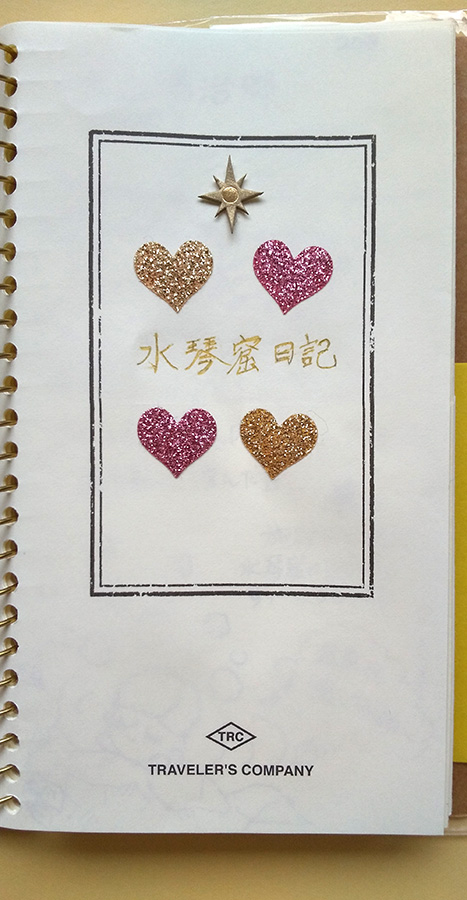 水琴窟日記
TRC
TRAVELER'S COMPANY